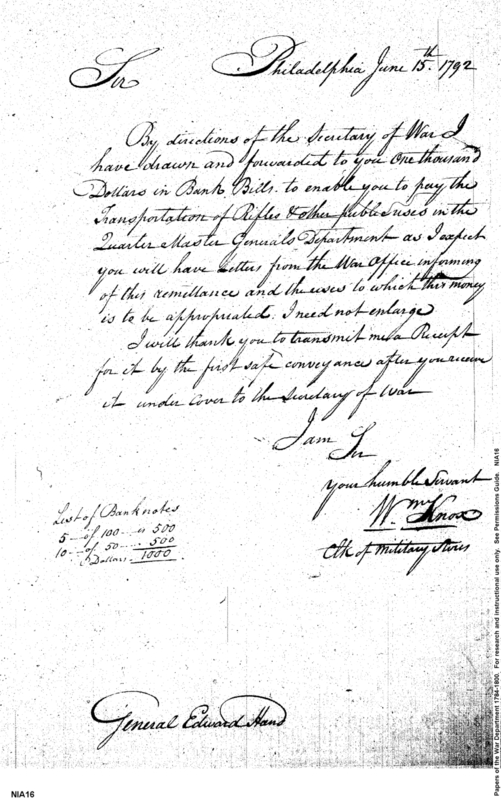 Philadelphia June 15th. 1792
Sir
By directions of the Secretary of War I
have drawn and forwarded to you One thousand
Dollars in Bank Bills. to enable you to pay the
Transportation of Rifles & other public uses in the
Quarter Master General's Department as I expect
you will have Letters from the War Office informing
of this remittance and the uses to which this money
is to be appropriated. I need not enlarge
I will thank you to transmit me a Receipt
for it by the first safe conveyance after you receive
it under cover to the Secretary of War
I am
Sir
your humble Servant
Wm Knox
Clk of Military Stores
List of Banknotes
5 -- of 100 -- is 500
10 -- of 50 -- . 500
Dollars . 1000
General Edward Hand
NIA16
Papers of the War Department 1784-1800. For research and instructional use only. See Permissions Guide. NIA16